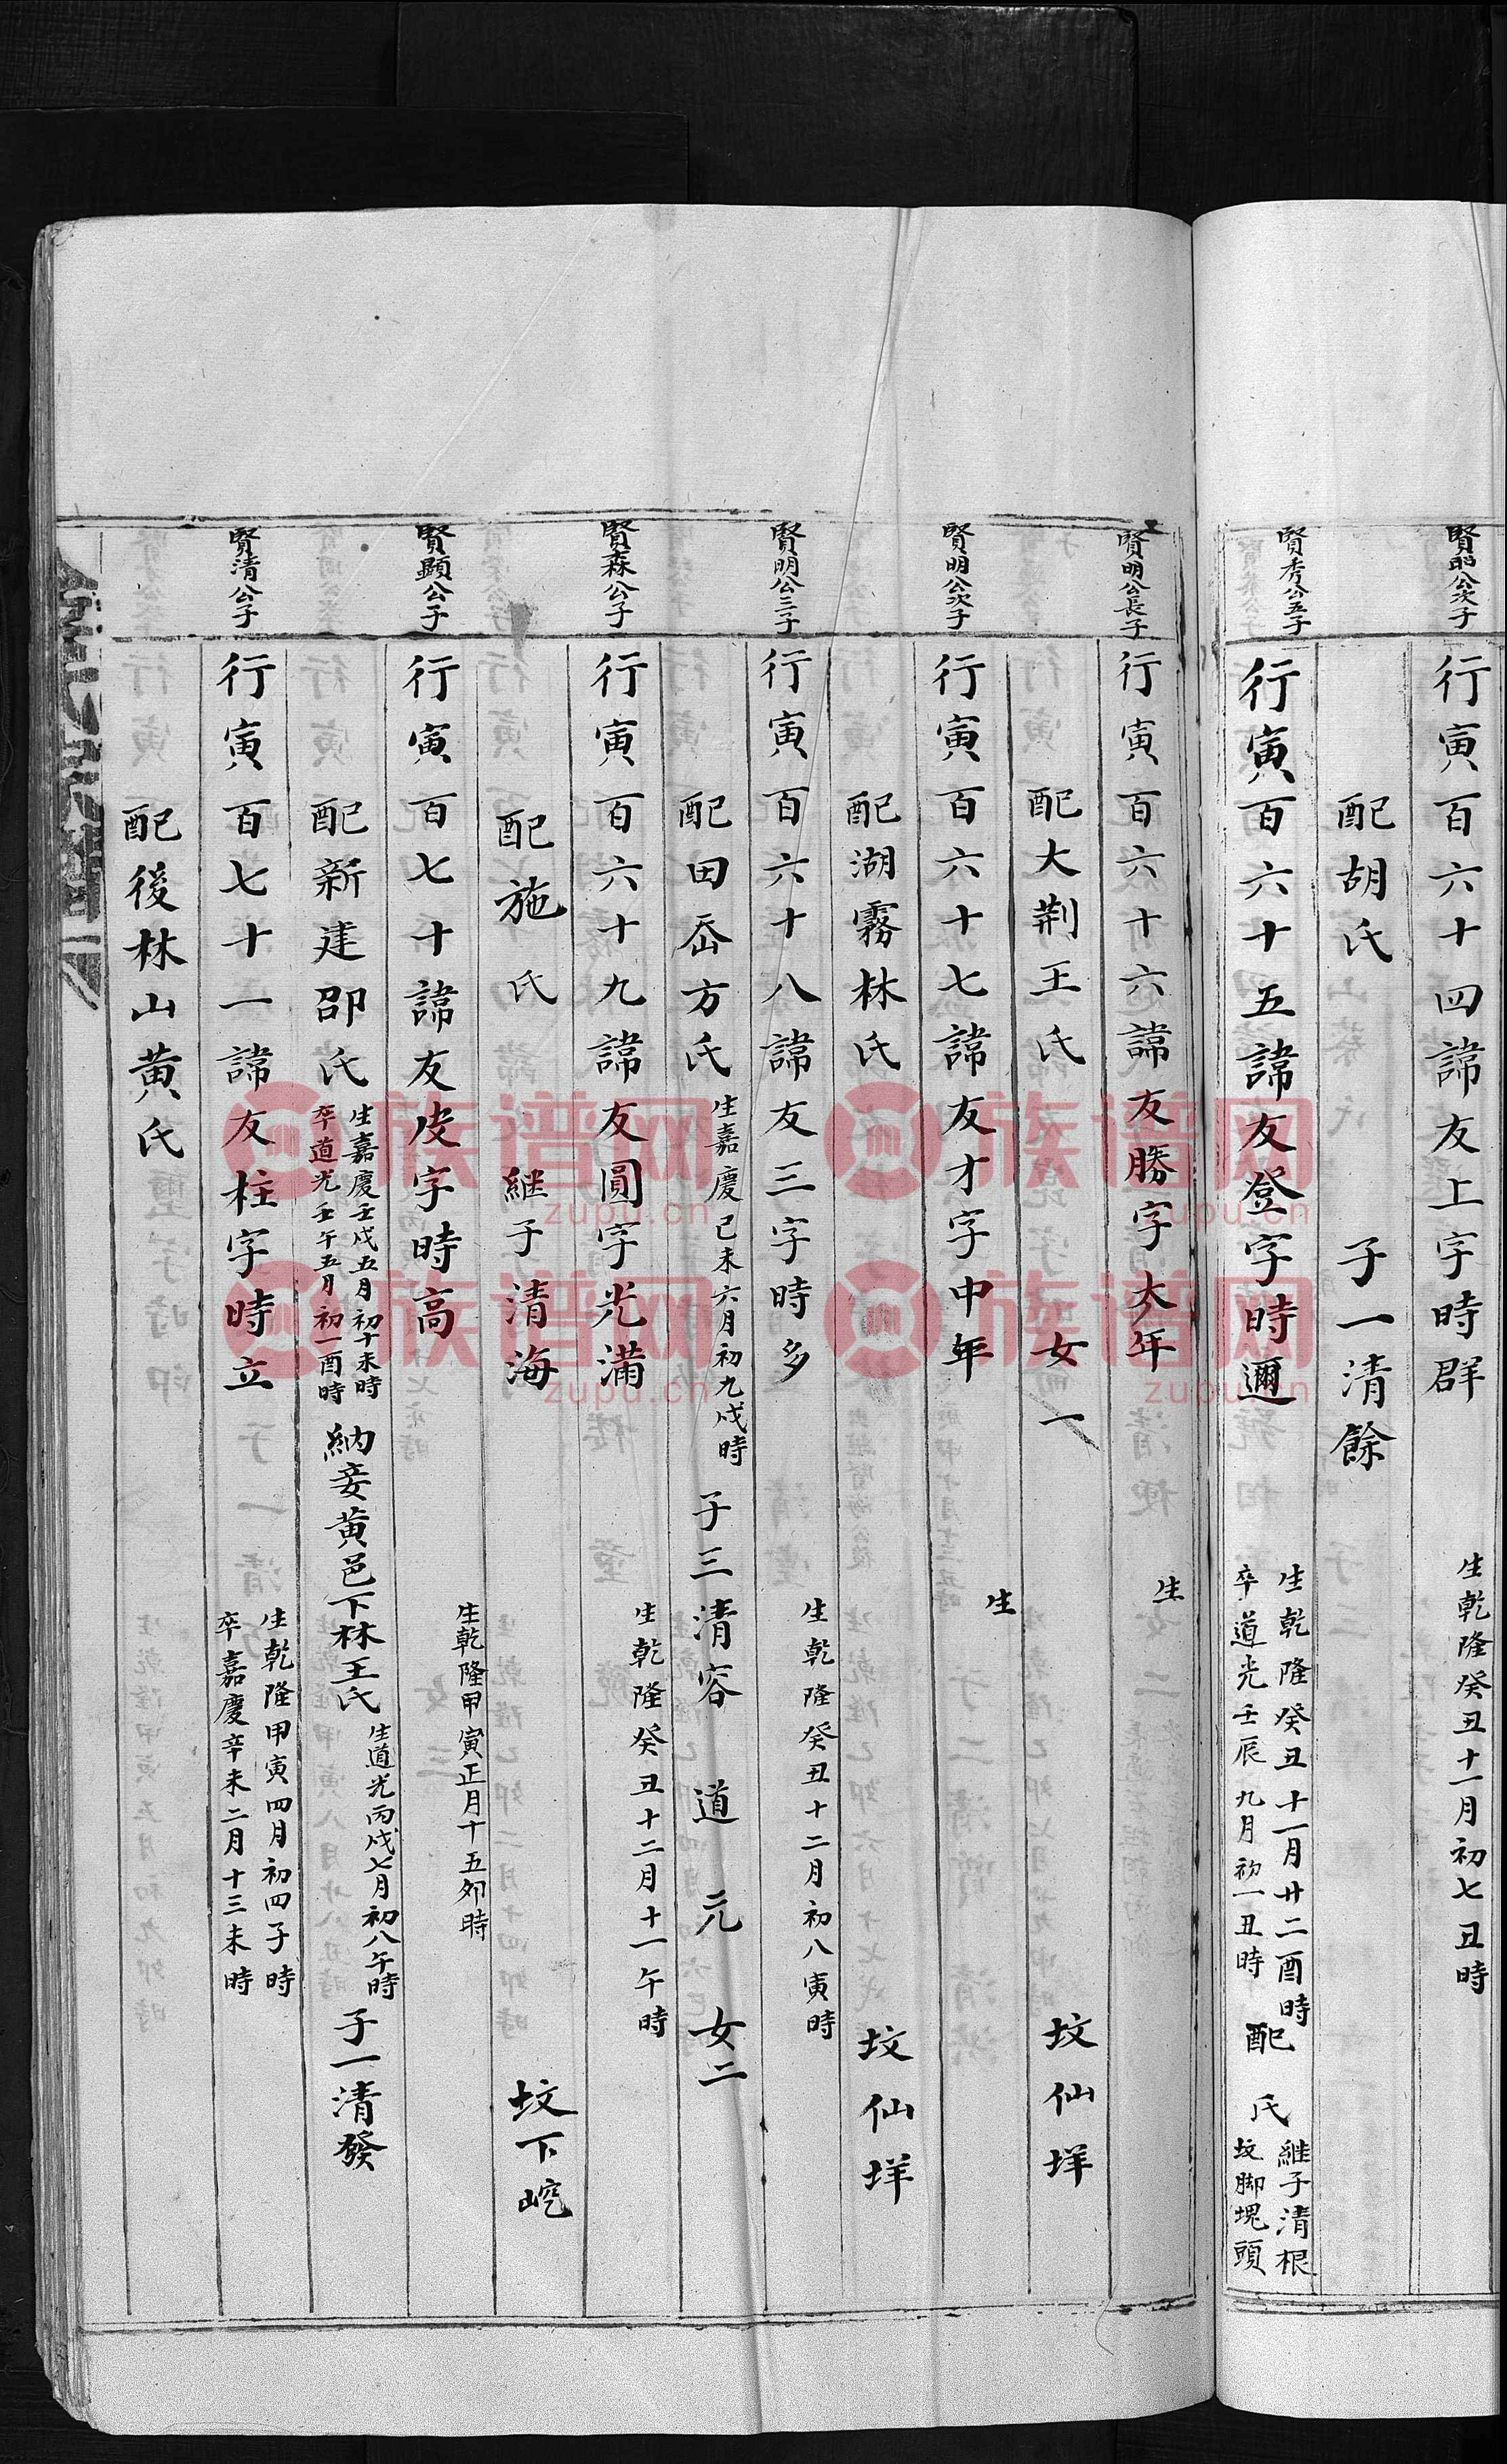 賢昭公次子
行寅百六十四諱友上字時群 生乾隆癸丑十一月初七丑時
配胡氏 子一清餘
賢秀公五子
行寅百六十五諱友登字時邇 生乾隆癸丑十一月廿二酉時
卒道光壬辰九月初一丑時
配 氏 繼子清根
坟脚塊頭
賢明公長子
行寅百六十六諱友勝字大年 生
配大荆王氏 女一 坟仙垟
賢明公次子
行寅百六十七諱友才字中年 生
配湖霧林氏 坟仙垟
賢明公三子
行寅百六十八諱友三字時多 生乾隆癸丑十二月初八寅時
配田岙方氏 生嘉慶己未六月初九戌時 子三清容 道 元 女二
賢森公子
行寅百六十九諱友圓字光滿 生乾隆癸丑十二月十一午時
配施氏 継子清海 坟下㟎
賢顯公子
行寅百七十諱友皮字時高 生乾隆甲寅正月十五夘時
配新建邵氏 生嘉慶壬戌五月初十未時
卒道光壬午五月初一酉時
納妾黄邑下林王氏 生道光丙戌七月初八午時 子一清發
賢清公子
行寅百七十一諱友柱字時立 生乾隆甲寅四月初四子時
卒嘉慶辛未二月十三未時
配後林山黄氏
族谱网
zupu.cn
族谱网
zupu.cn
族谱网
zupu.cn
族谱网
zupu.cn